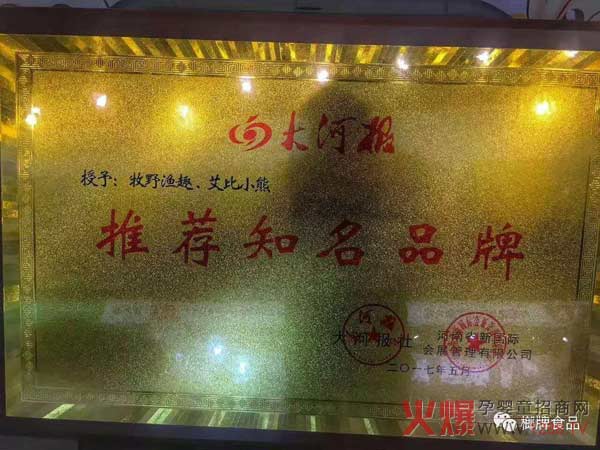 大河报
授予：牧野渔趣、艾比小熊
推荐知名品牌
大河报社
河南省新国际
会展管理有限公司
二〇一七年五月
火爆孕婴童招商网
榔牌食品